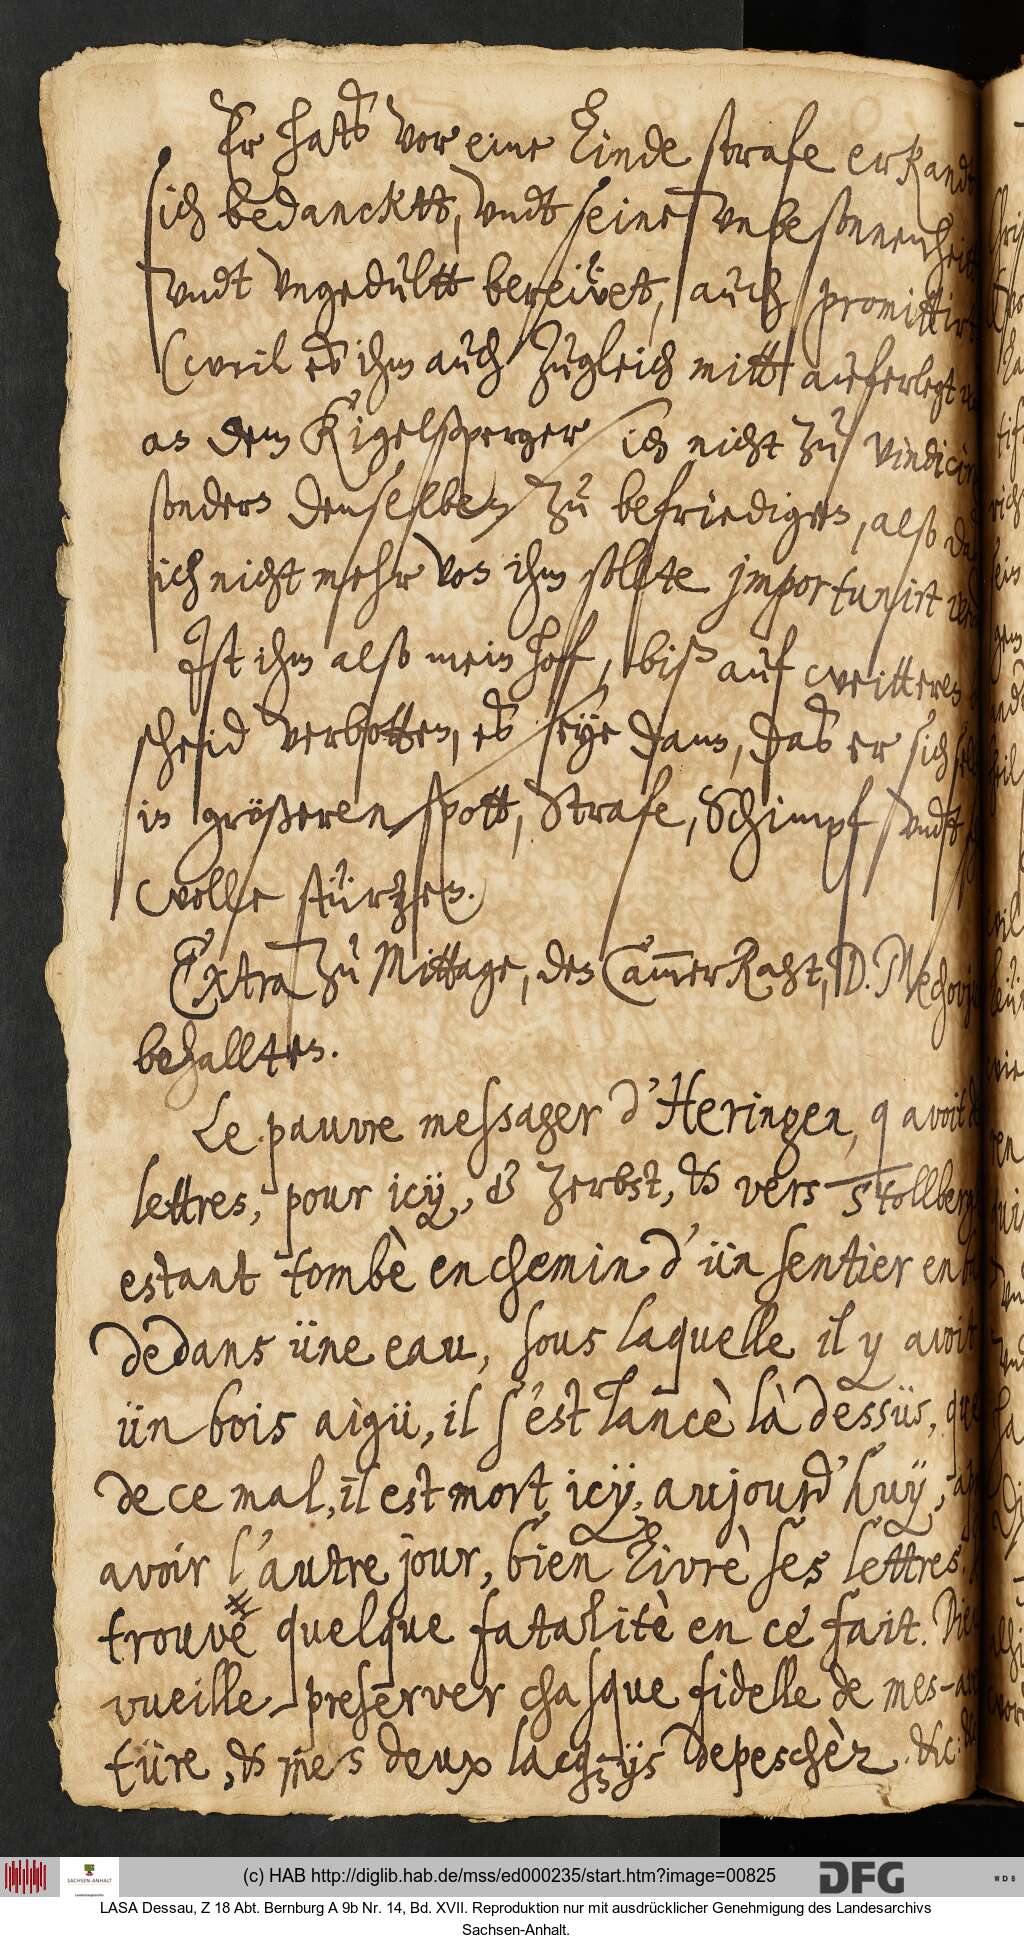 Er hats vor eine Linde strafe erkandt
sich bedancktt, vndt seine vnbesonnenheit
vndt vngedultt bereüet, auch promittirt
(weil es ihm auch zugleich mitt auferlegt
an dem Rigelßperger sich nicht zu vindicir
sondern denselben zu befriedigen, also
sich nicht mehr von ihm sollte importunirt
Ist ihm also mein hoff, biß auf weitteren
scheid verbotten, es seye dann, das er sich
in größeren spott, Strafe, Schimpf vndt
wolle stürtzen.
Extra zu Mittage, den CammerRaht, D. Mechovi
behallten.
Le pauvre messager d'Heringen, q avoit
lettres, pour icÿ, & Zerbst, & vers Stollberg
estant tombè en chemin d'ün sentier en
dedans üne eau, sous laquelle il y avoit
ün bois aigü, il s'est lancè là dessüs, que
de ce mal, il est mort icÿ, aujourd'huÿ,
avoir l'autre jour, bien livrè ses lettres.
trouvè quelque fatalitè en ce fait. Dieu
vueille preserver chasque fidelle de mes-
türe, & mes deux lacqu ÿs depeschèz &c:
(c) HAB http://diglib.hab.de/mss/ed000235/start.htm?image=00825
DFG
WDB
SACHSEN-ANHALT
LASA Dessau, Z 18 Abt. Bernburg A 9b Nr. 14, Bd. XVII. Reproduktion nur mit ausdrücklicher Genehmigung des Landesarchivs
Sachsen-Anhalt.